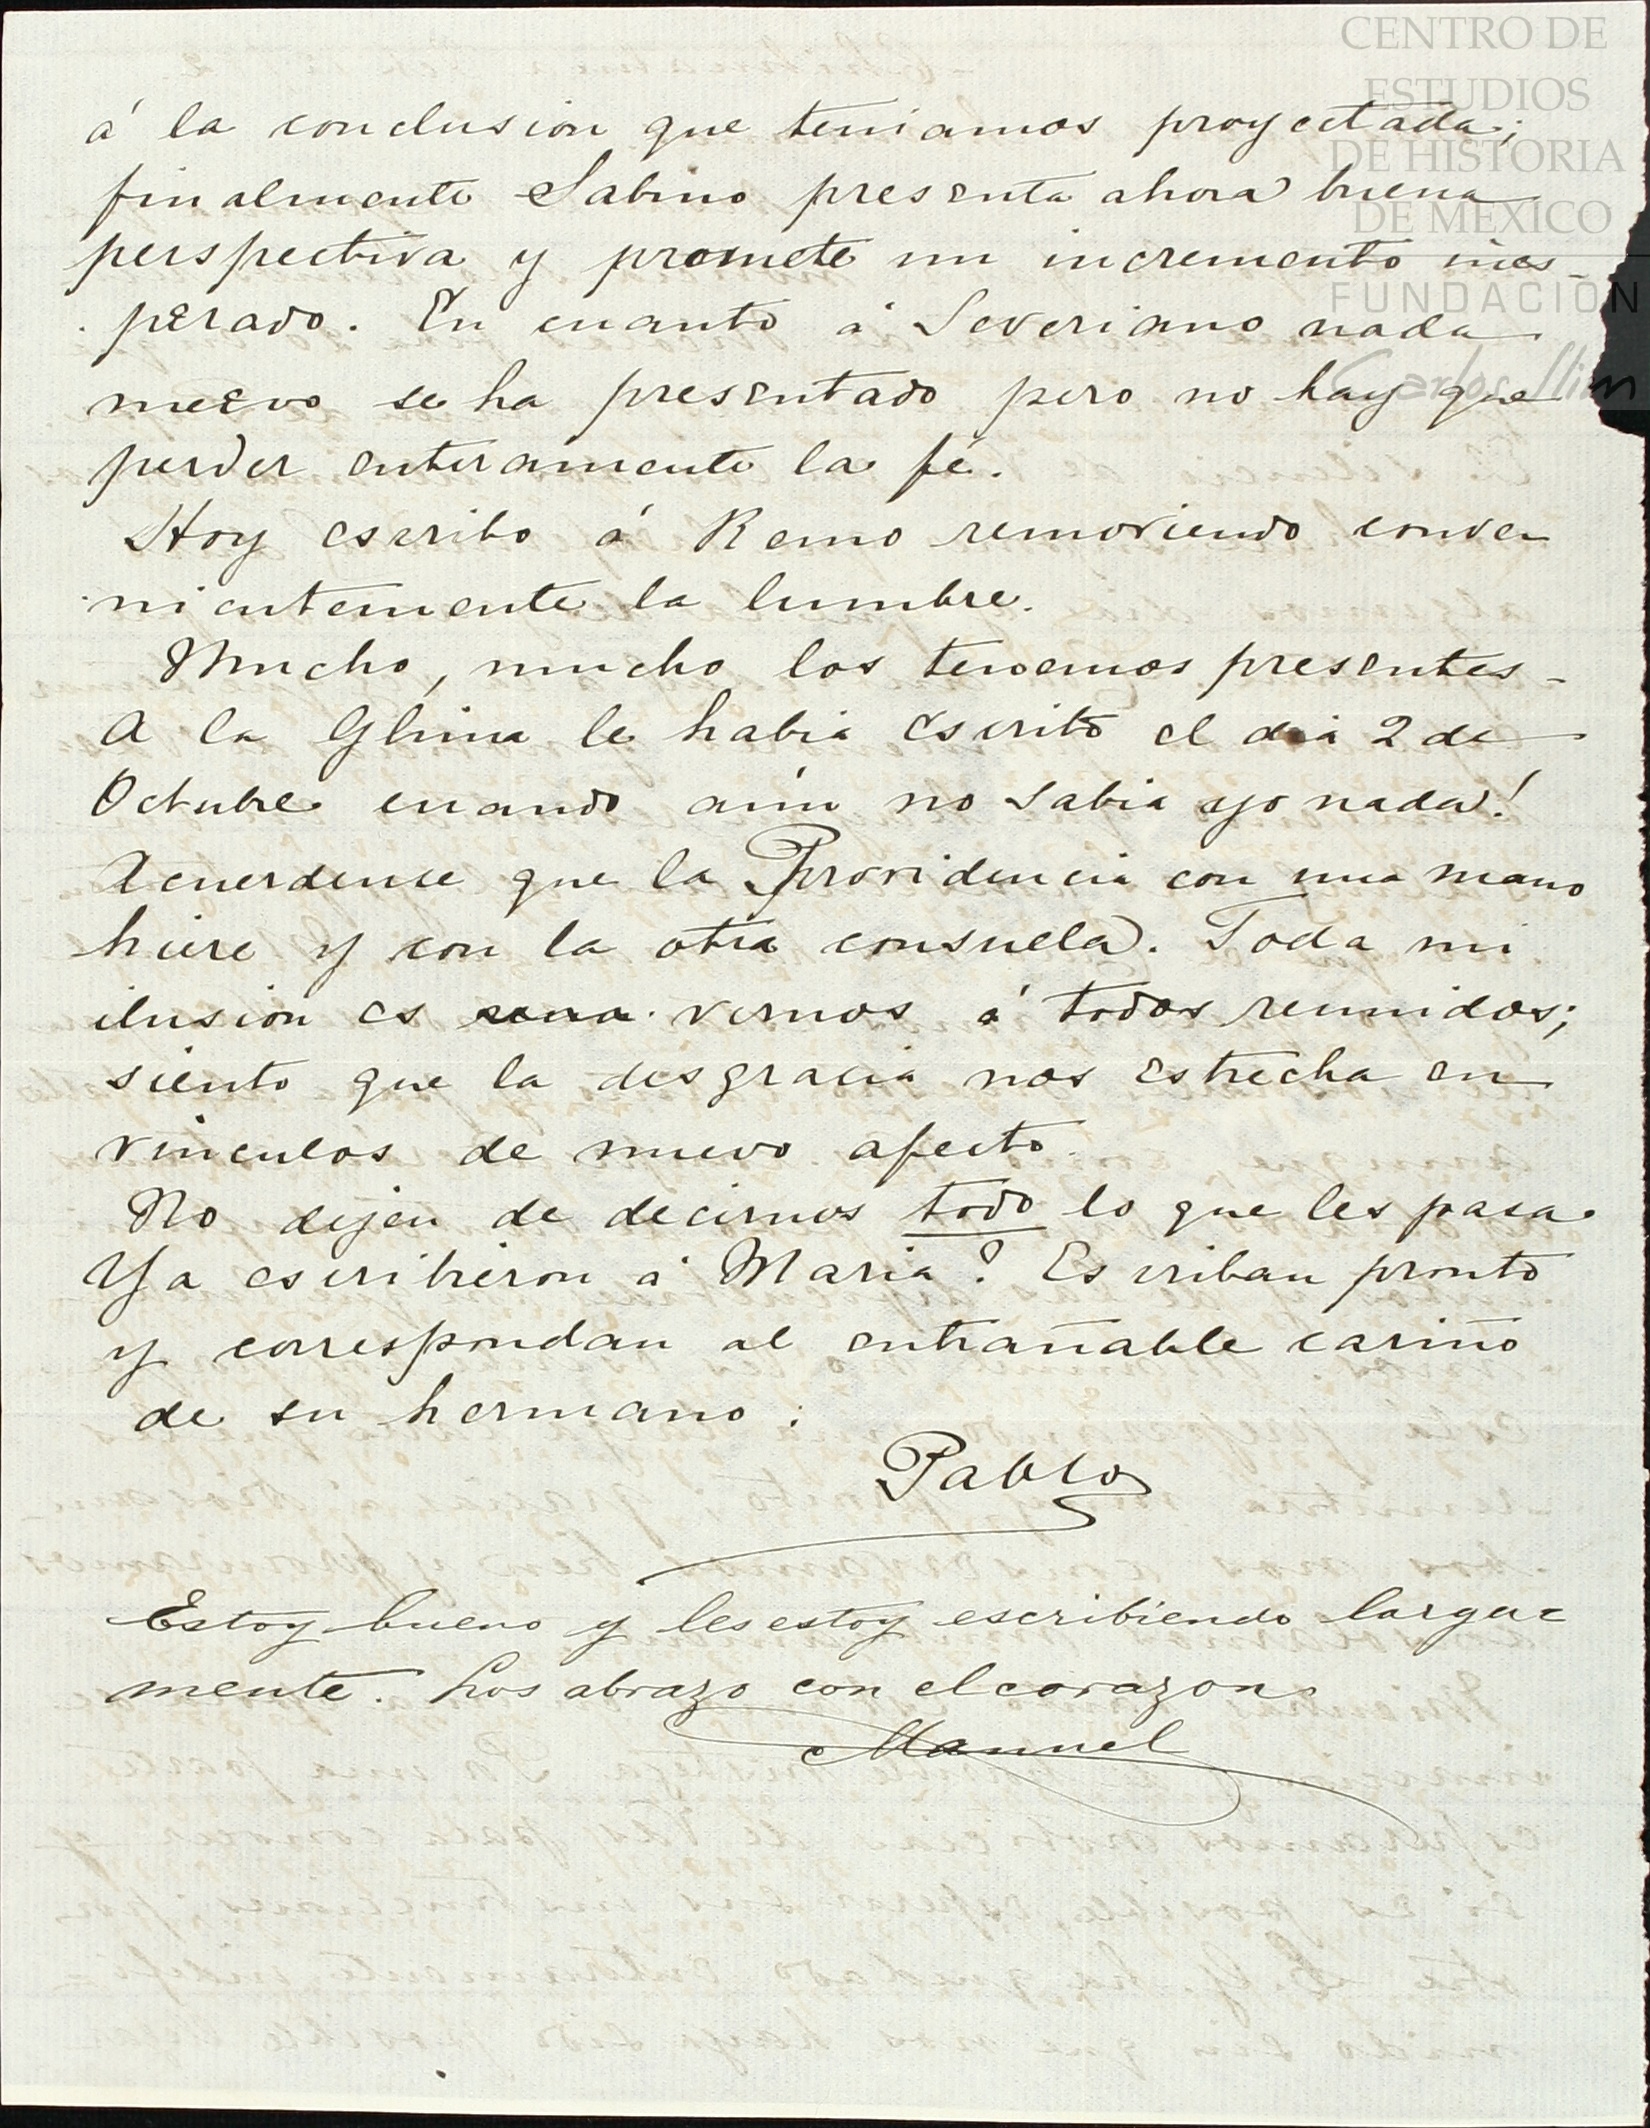 á la conclusión que teniamos proyectada;
finalmente Sabino presenta ahora buena
perspectiva y promete un incremento ines-
perado. En cuanto á Severiano nada
nuevo se ha presentado pero no hay que
perder enteramente la fé.
Hoy escribo á Remo removiendo conve
nientemente la lumbre.
Mucho, mucho los tenemos presentes -
A la le habia escrito el dia 2 de
Octubre cuando aún no sabia yo nada!
Acuerdense que la Providencia con una mano
hiere y con la otra consuela. Toda mi
ilusión es vernos á todos reunidos;
siento que la desgracia nos estrecha en
vinculos de nuevo afecto.
No dejen de decirnos todo lo que les pasa.
Ya escribieron á Maria? Escriban pronto
y correspondan al entrañable cariño
de su hermano.
Pablo
Estoy bueno y les estoy escribiendo larga=
mente. Los abrazo con el corazon
Manuel
CENTRO DE
ESTUDIOS
DE HISTORIA
DE MEXICO
FUNDACIÓN
Carlos Slim